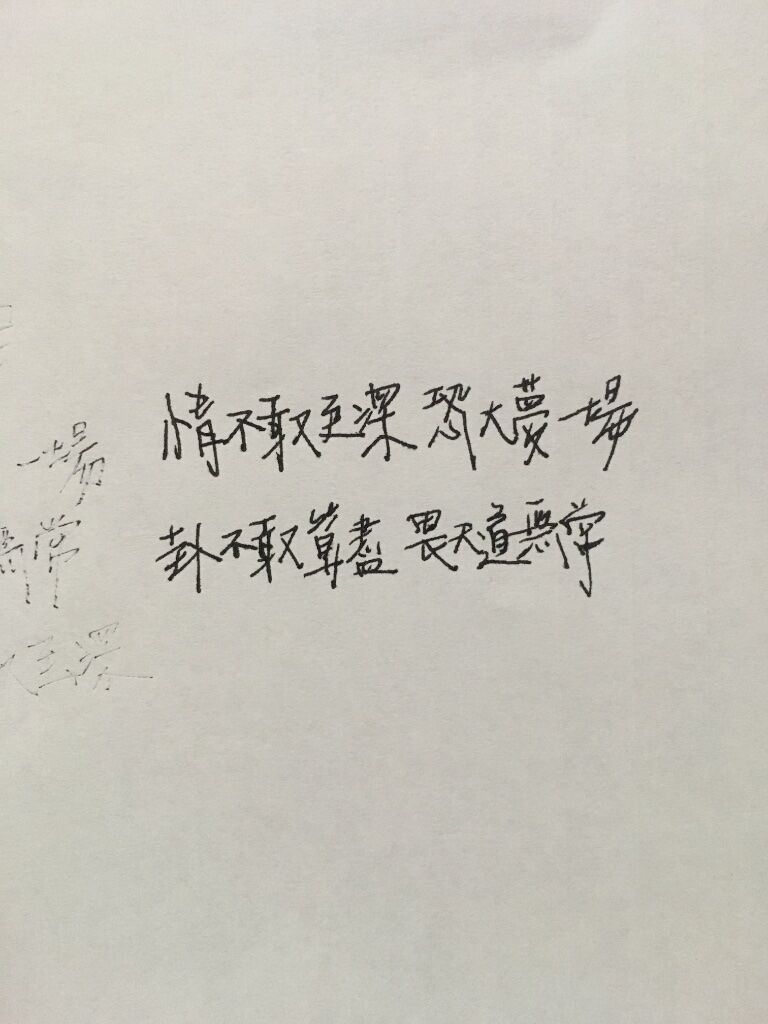 情不敢至深 恐大夢一場
卦不敢算盡 畏天道無常
一場
常
至深